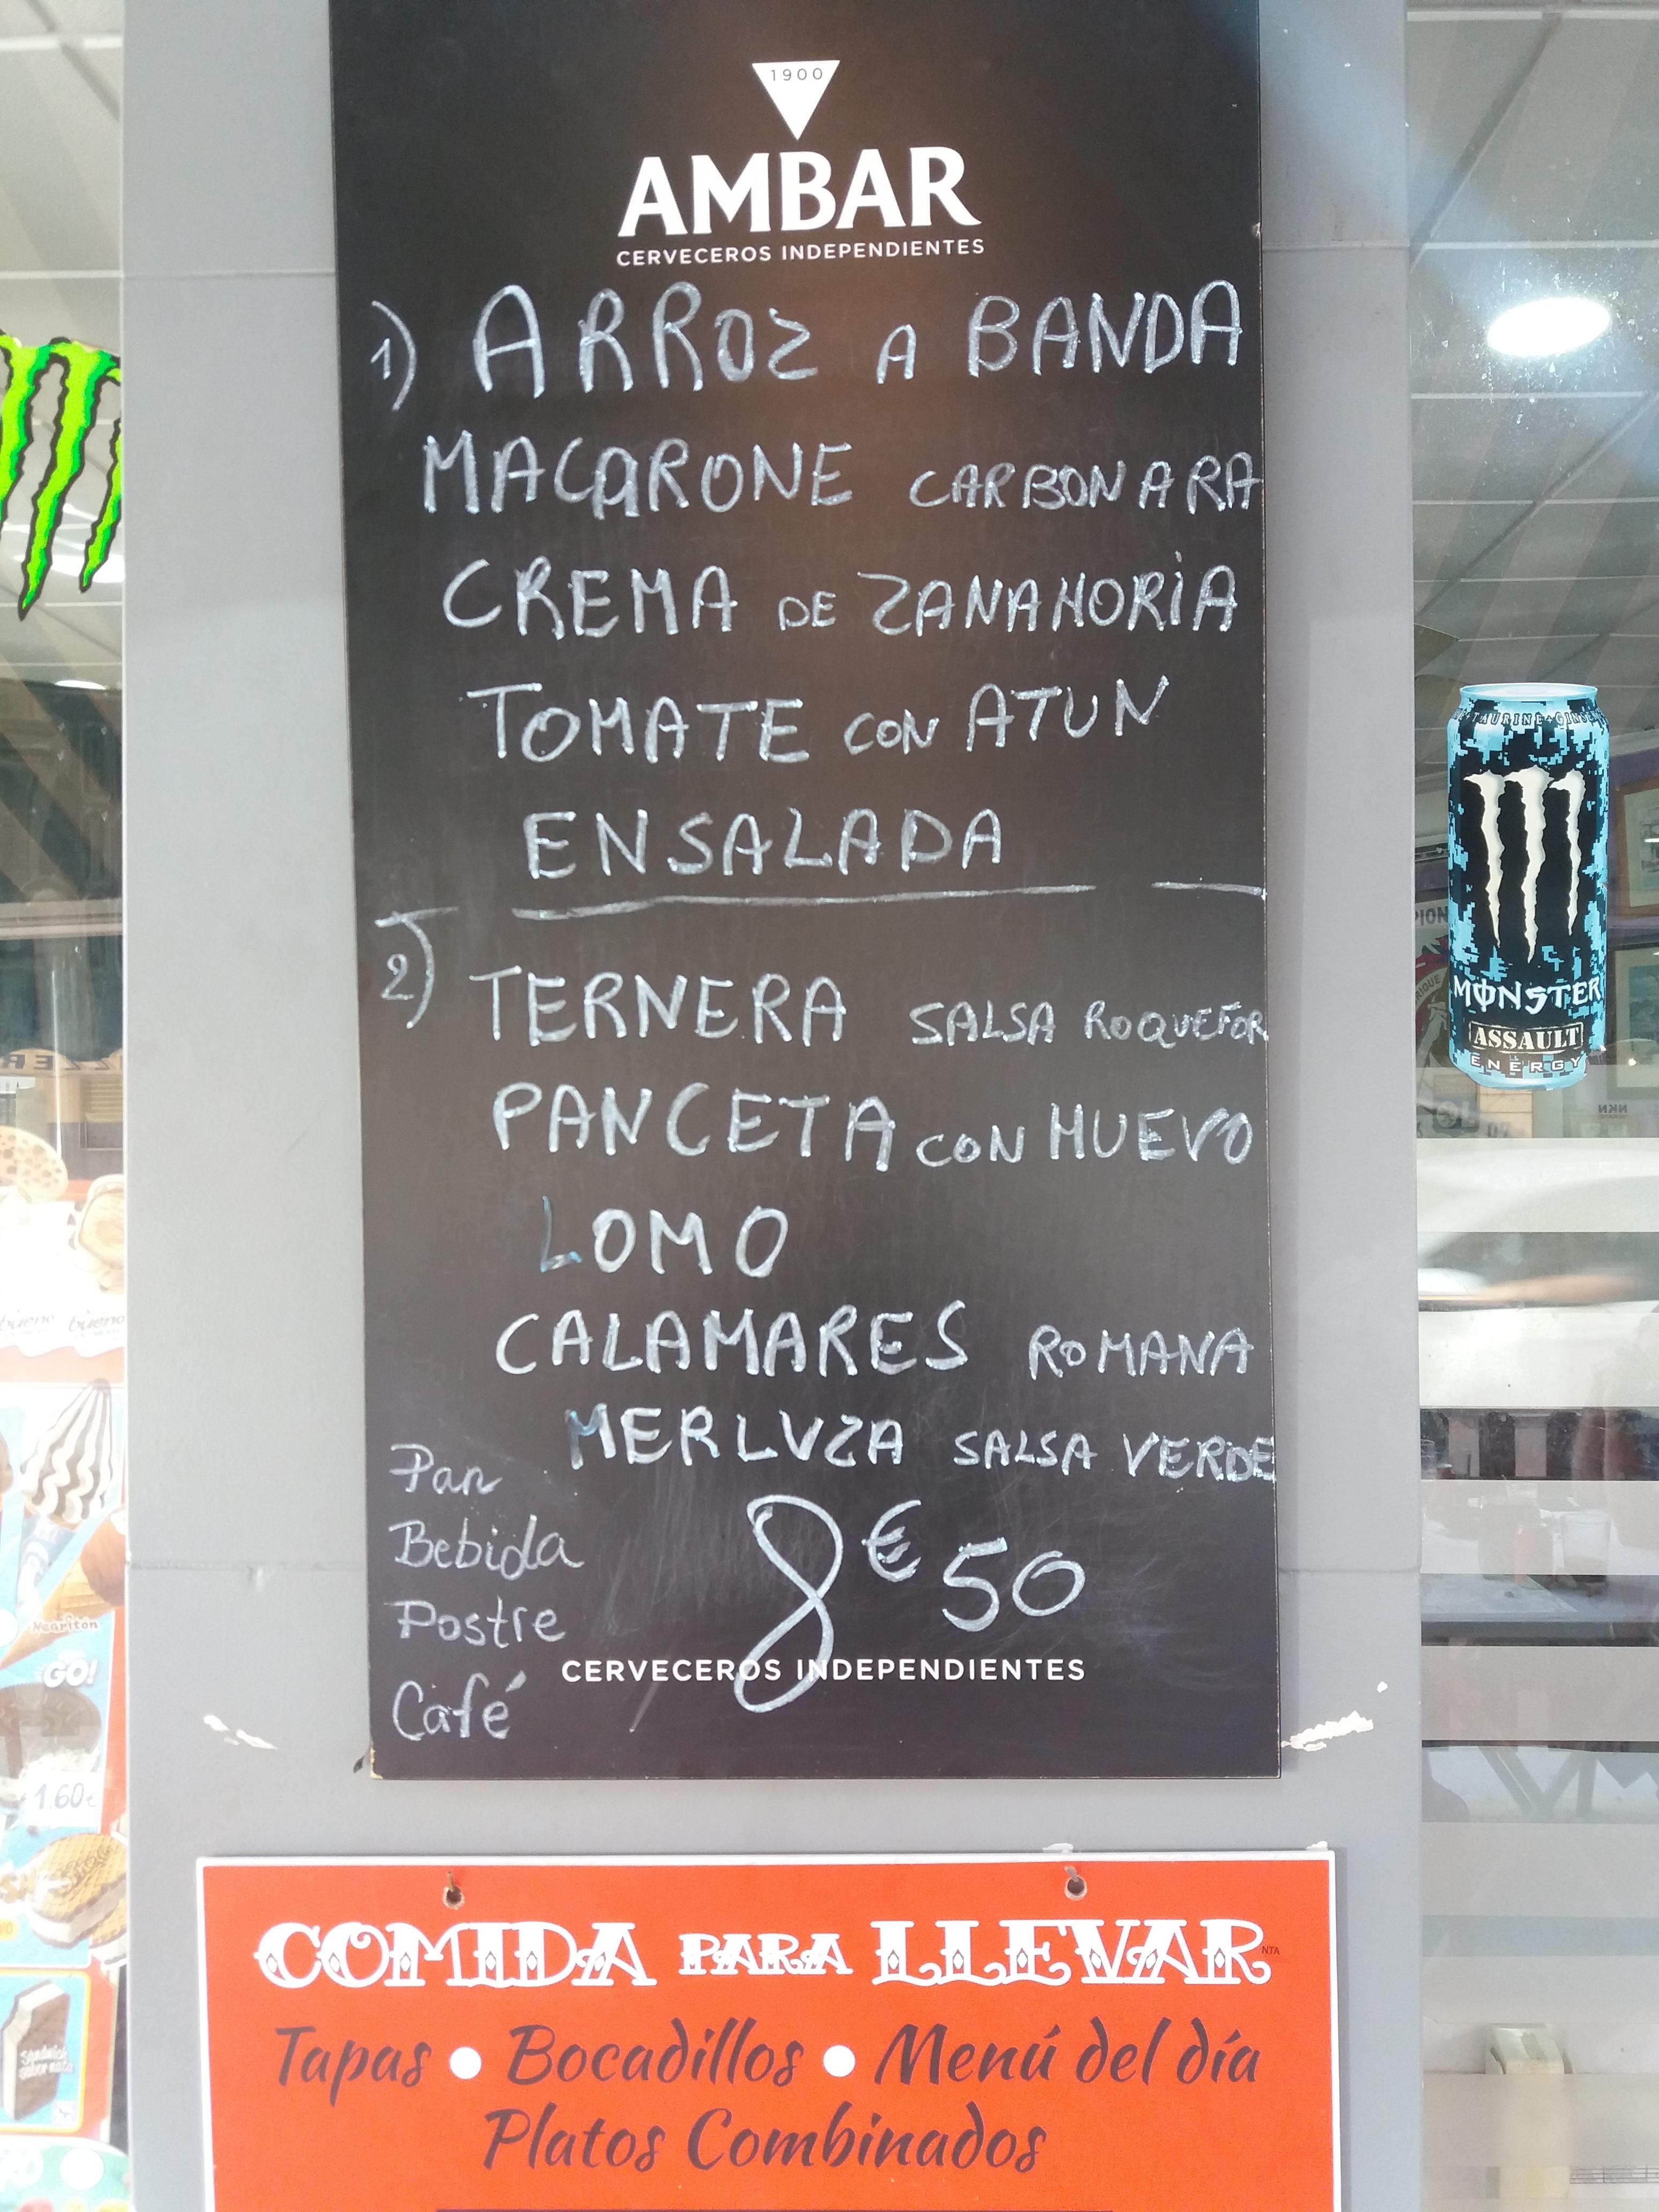 1900
AMBAR
CERVECEROS INDEPENDIENTES
1) ARROZ A BANDA
MACARONE CARBONARA
CREMA DE ZANAHORIA
TOMATE CON ATUN
ENSALADA
2) TERNERA SALSA ROQUEFOR
PANCETA CON HUEVO
LOMO
CALAMARES ROMANA
MERLUZA SALSA VERDE
Pan
Bebida
Postre
Café
8€50
CERVECEROS INDEPENDIENTES
COMIDA PARA LLEVAR
Tapas • Bocadillos • Menú del día
Platos Combinados
MONSTER
ASSAULT
ENERGY
bueno bueno
Negritón
GO!
1.60€
Sandwich
sabor nata